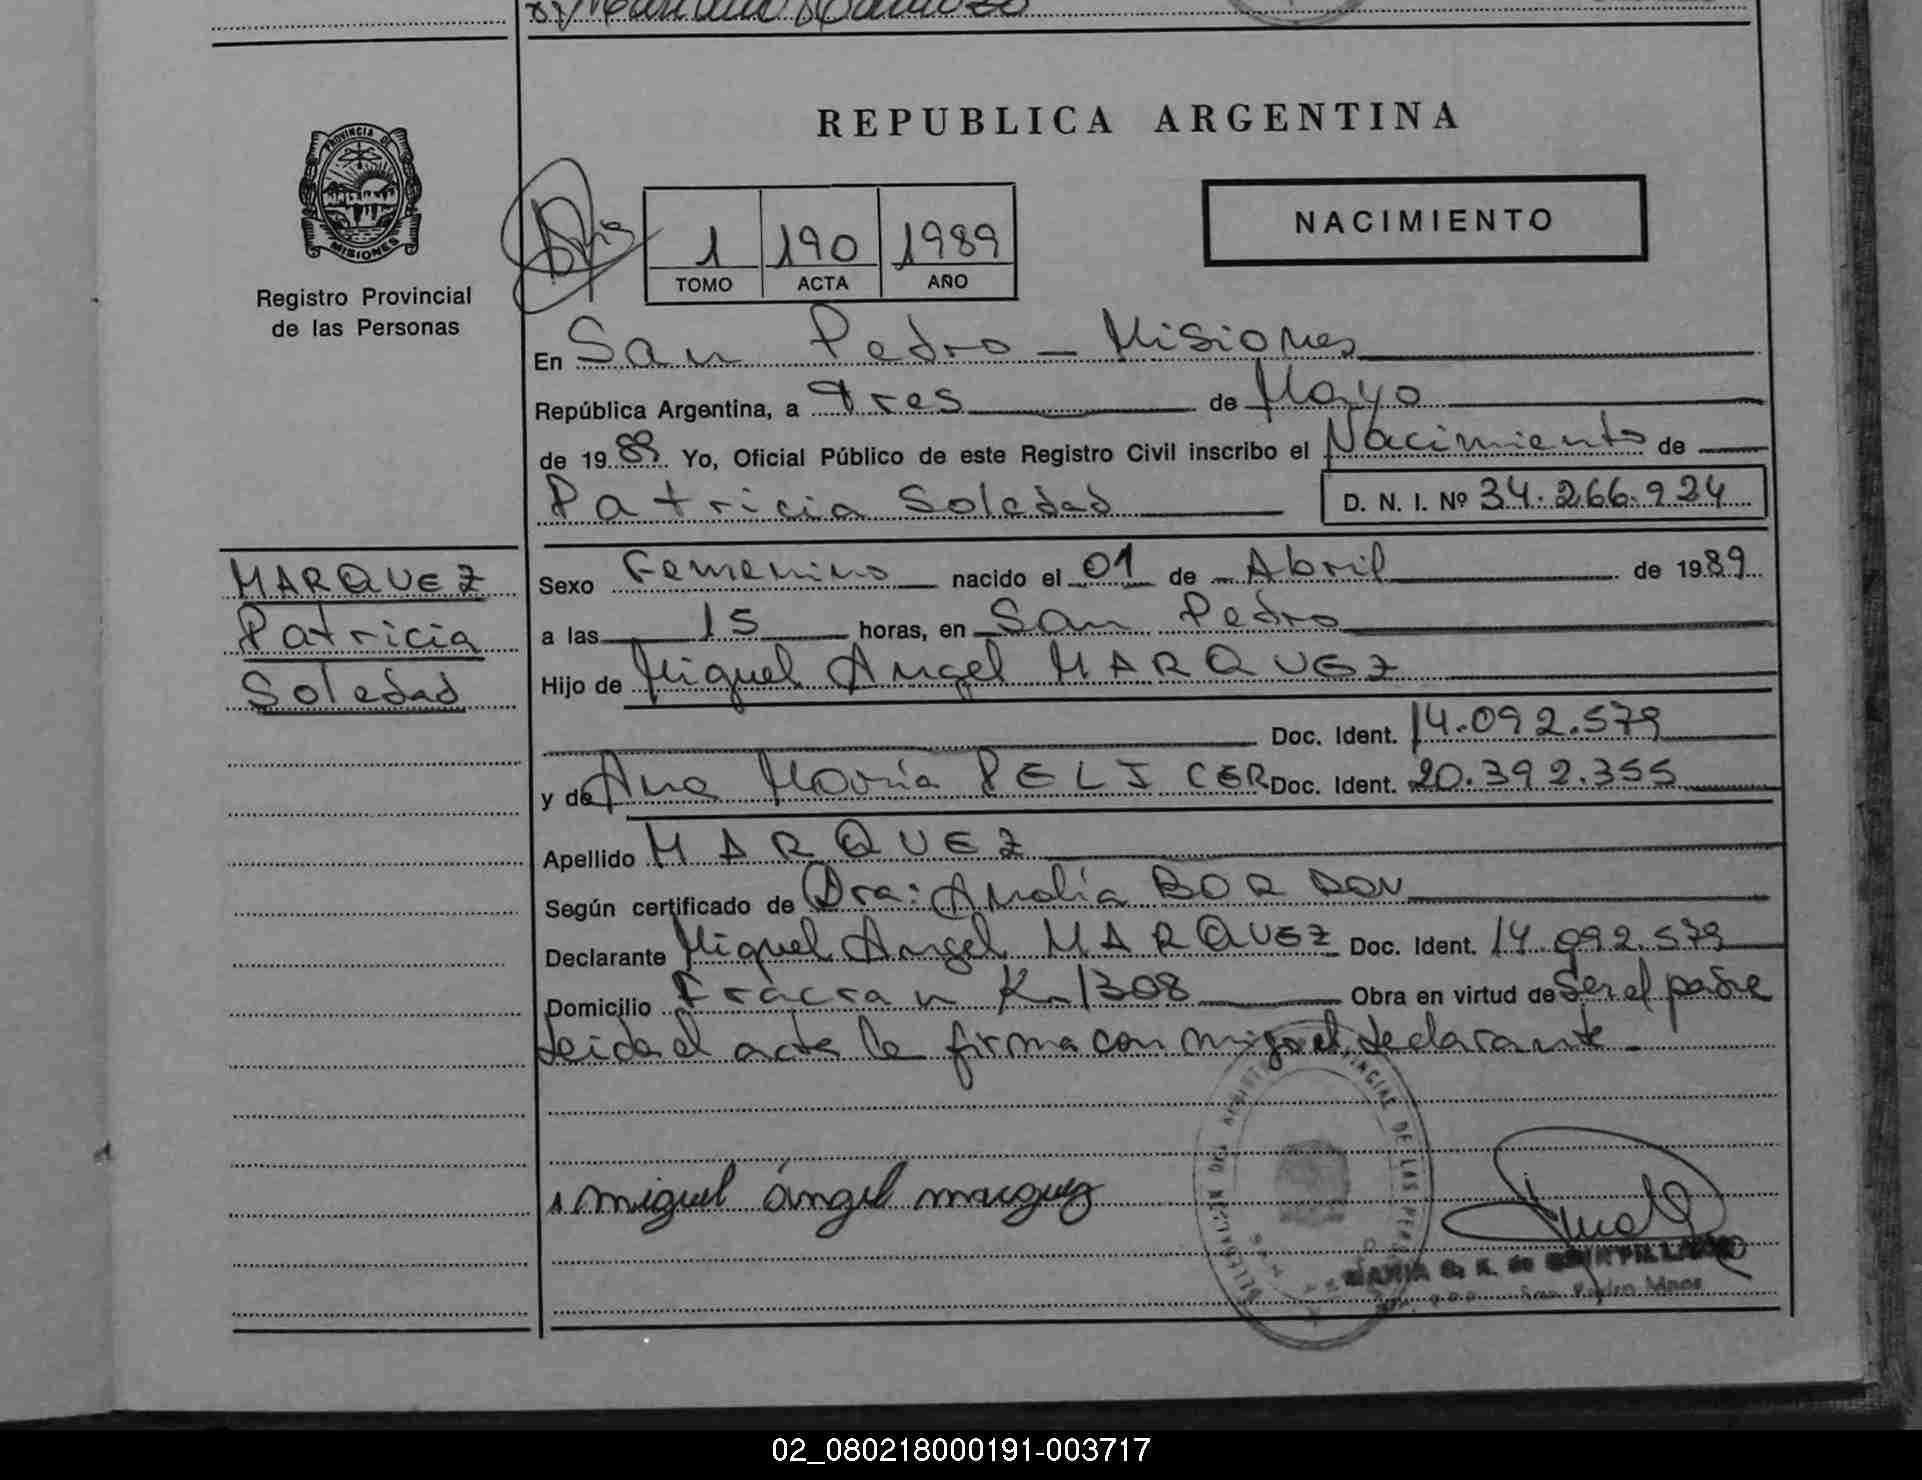 PROVINCIA DE
MISIONES
Registro Provincial
de las Personas
MARQUEZ
Patricia
Soledad
REPUBLICA ARGENTINA
NACIMIENTO
1 190 1989
TOMO ACTA AÑO
En San Pedro - Misiones
República Argentina, a tres de Mayo
de 1989 Yo, Oficial Público de este Registro Civil inscribo el Nacimiento de
Patricia Soledad D. N. I. Nº 34.266.924
Sexo Femenino nacido el 01 de Abril de 1989
a las 15 horas, en San Pedro
Hijo de Miguel Angel MARQUEZ
Doc. Ident. 14.092.579
y de Ana María PELICER Doc. Ident. 20.392.355
Apellido MARQUEZ
Según certificado de Dra: Amalia BORDON
Declarante Miguel Angel MARQUEZ Doc. Ident. 14.092.579
Domicilio Fracran Km 1308 Obra en virtud de Ser el padre
Leida el acta la firma con migo el declarante -
miguel ángel marquez
02_080218000191-003717